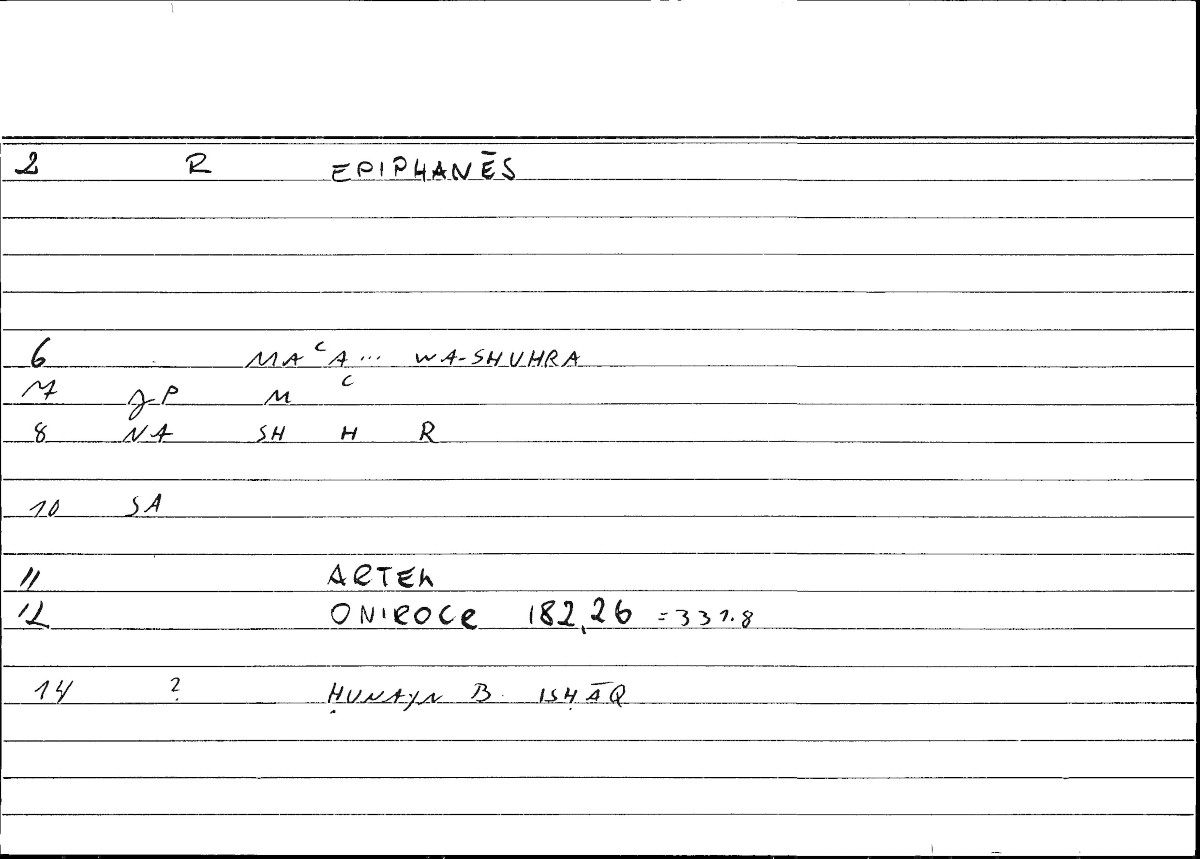 2 R EPIPHANĒS
6 MAᶜA... WA-SHUHRA
7 JP M ᶜ
8 NA SH H R
10 SA
11 ARTEM
12 ONIROCR 182,26 =331.8
14 ? ḤUNAYN B. ISḤĀQ